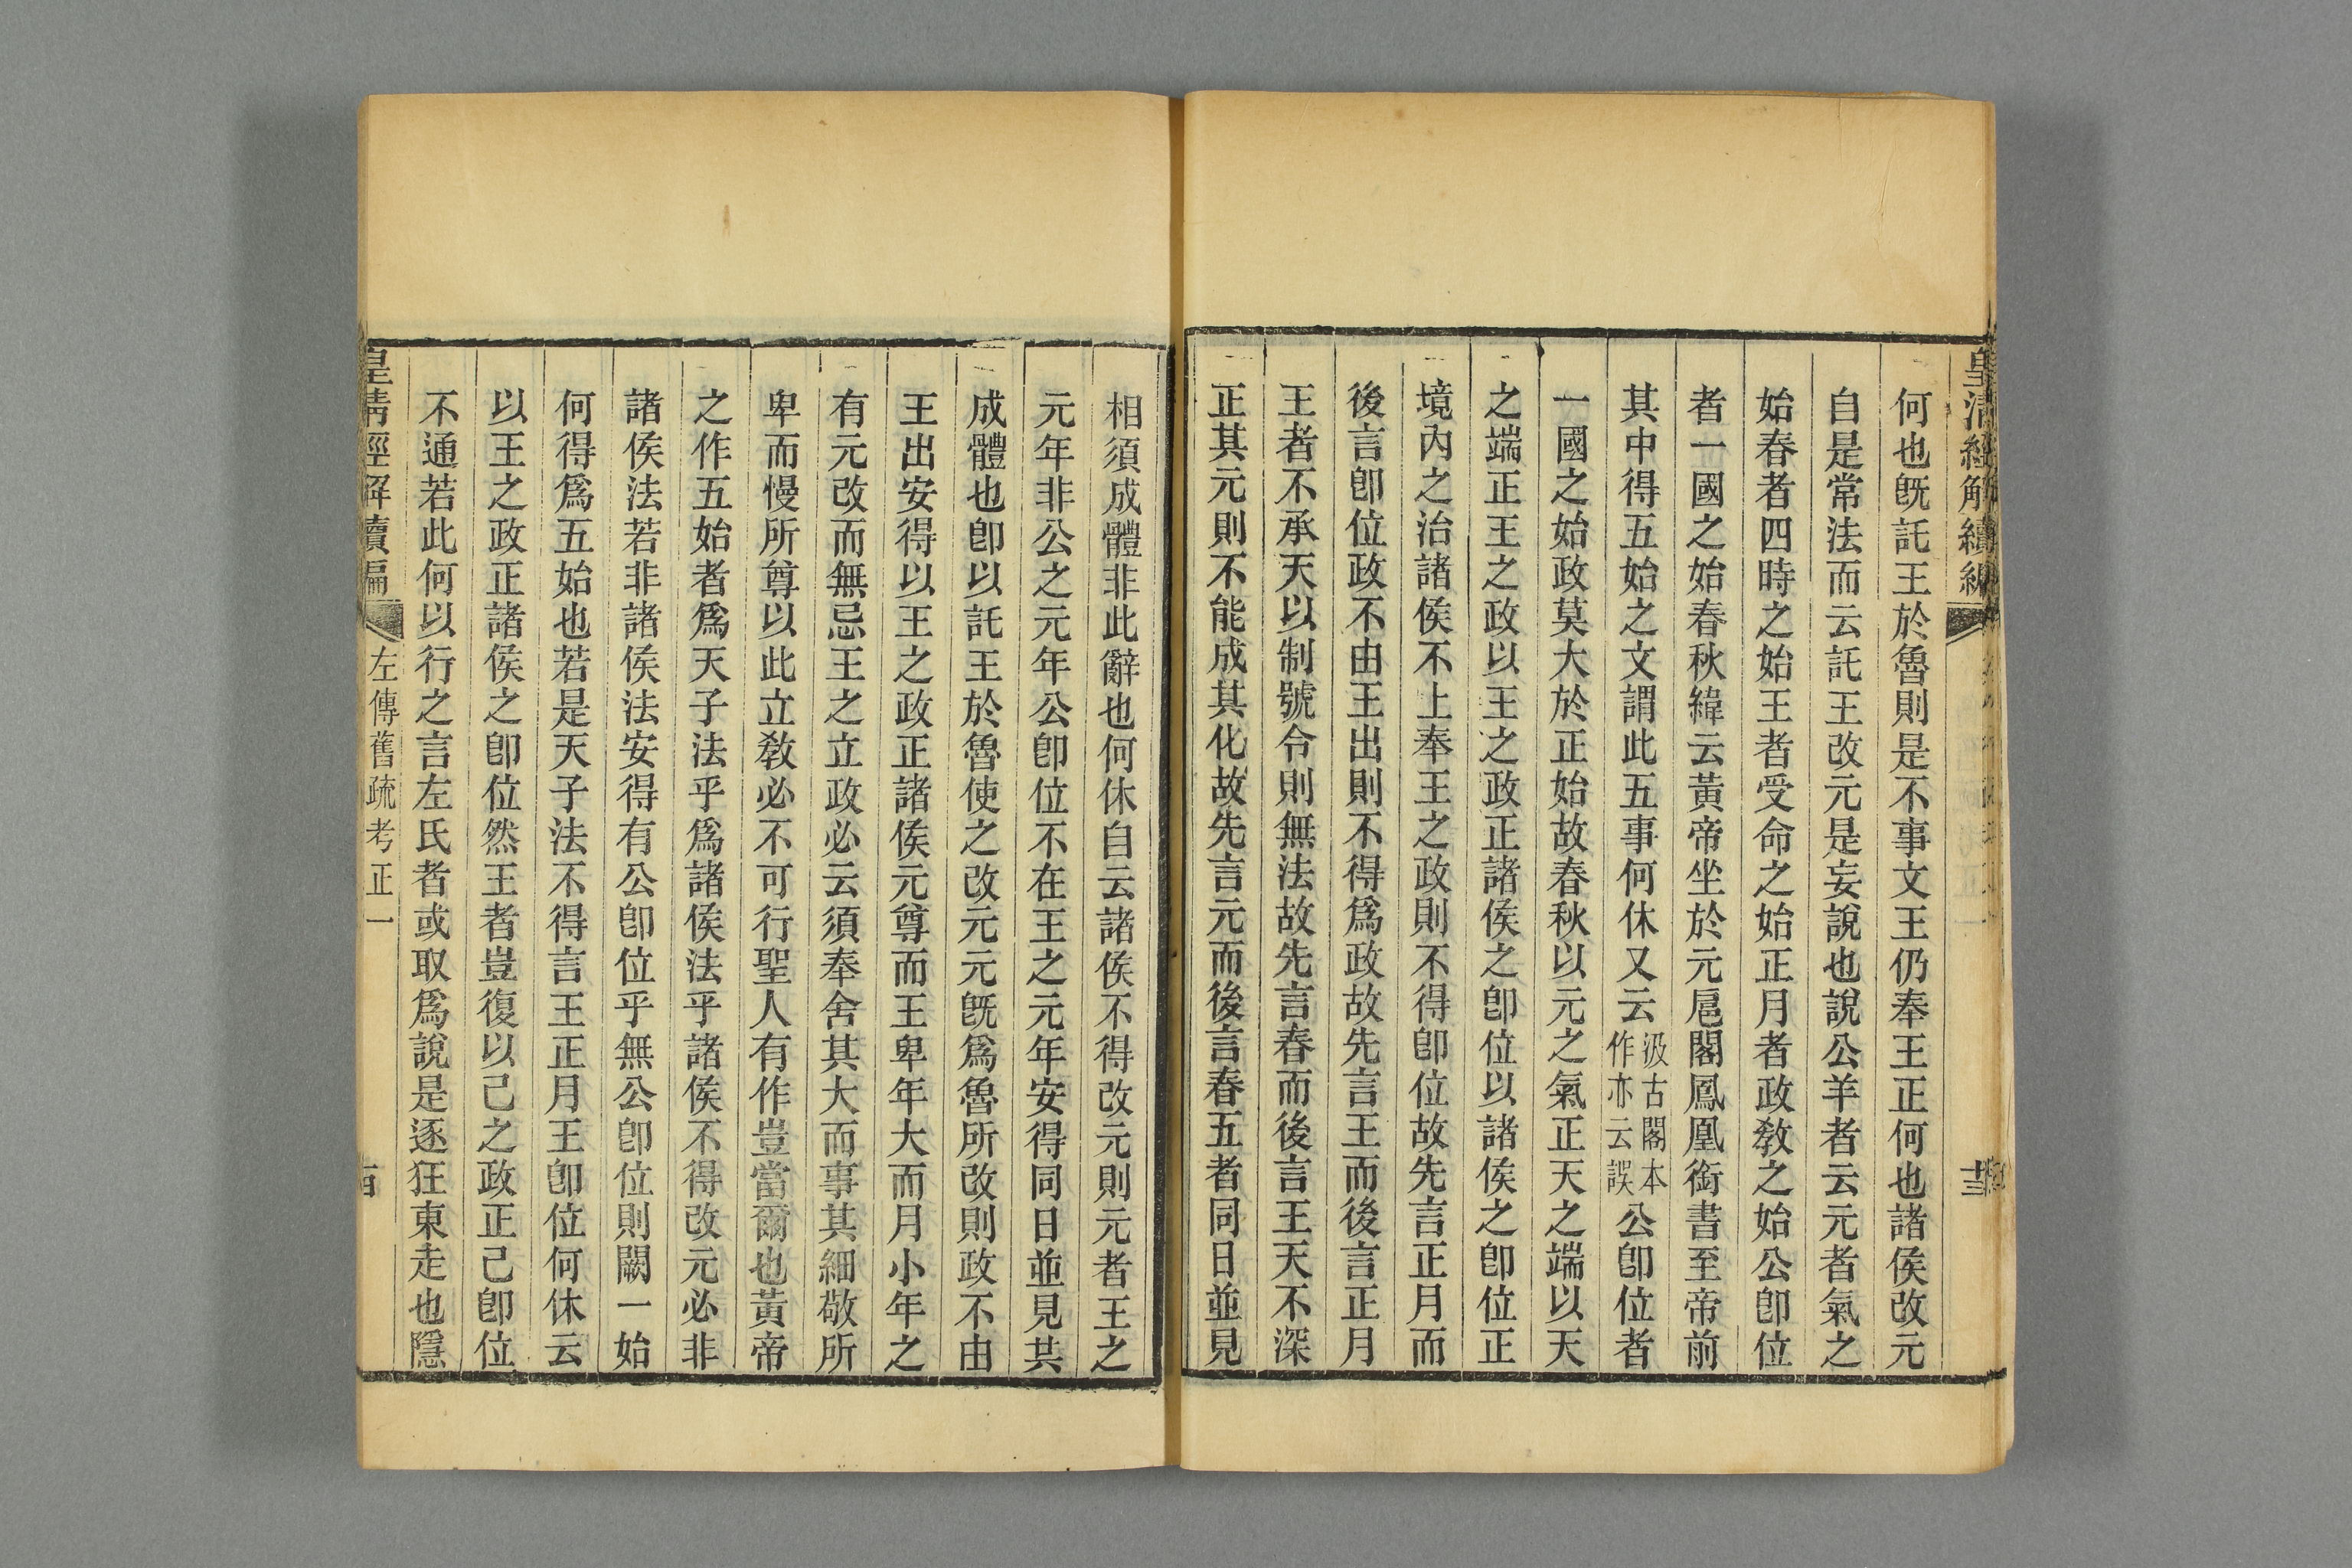 皇清經解續編
十三
何也旣託王於魯則是不事文王仍奉王正何也諸侯改元
自是常法而云託王改元是妄說也說公羊者云元者氣之
始春者四時之始王者受命之始正月者政敎之始公卽位
者一國之始春秋緯云黃帝坐於元扈閣鳳凰銜書至帝前
其中得五始之文謂此五事何休又云汲古閣本作亦云誤公卽位者
一國之始政莫大於正始故春秋以元之氣正天之端以天
之端正王之政以王之政正諸侯之卽位以諸侯之卽位正
境內之治諸侯不上奉王之政則不得卽位故先言正月而
後言卽位政不由王出則不得爲政故先言王而後言正月
王者不承天以制號令則無法故先言春而後言王天不深
正其元則不能成其化故先言元而後言春五者同日並見
相須成體非此辭也何休自云諸侯不得改元則元者王之
元年非公之元年公卽位不在王之元年安得同日並見共
成體也卽以託王於魯使之改元元旣爲魯所改則政不由
王出安得以王之政正諸侯元尊而王卑年大而月小年之
有元改而無忌王之立政必云須奉舍其大而事其細敬所
卑而慢所尊以此立敎必不可行聖人有作豈當爾也黃帝
之作五始者爲天子法乎爲諸侯法乎諸侯不得改元必非
諸侯法若非諸侯法安得有公卽位乎無公卽位則闕一始
何得爲五始也若是天子法不得言王正月王卽位何休云
以王之政正諸侯之卽位然王者豈復以己之政正己卽位
不通若此何以行之言左氏者或取爲說是逐狂東走也隱
皇淸經解續編
左傳舊疏考正一